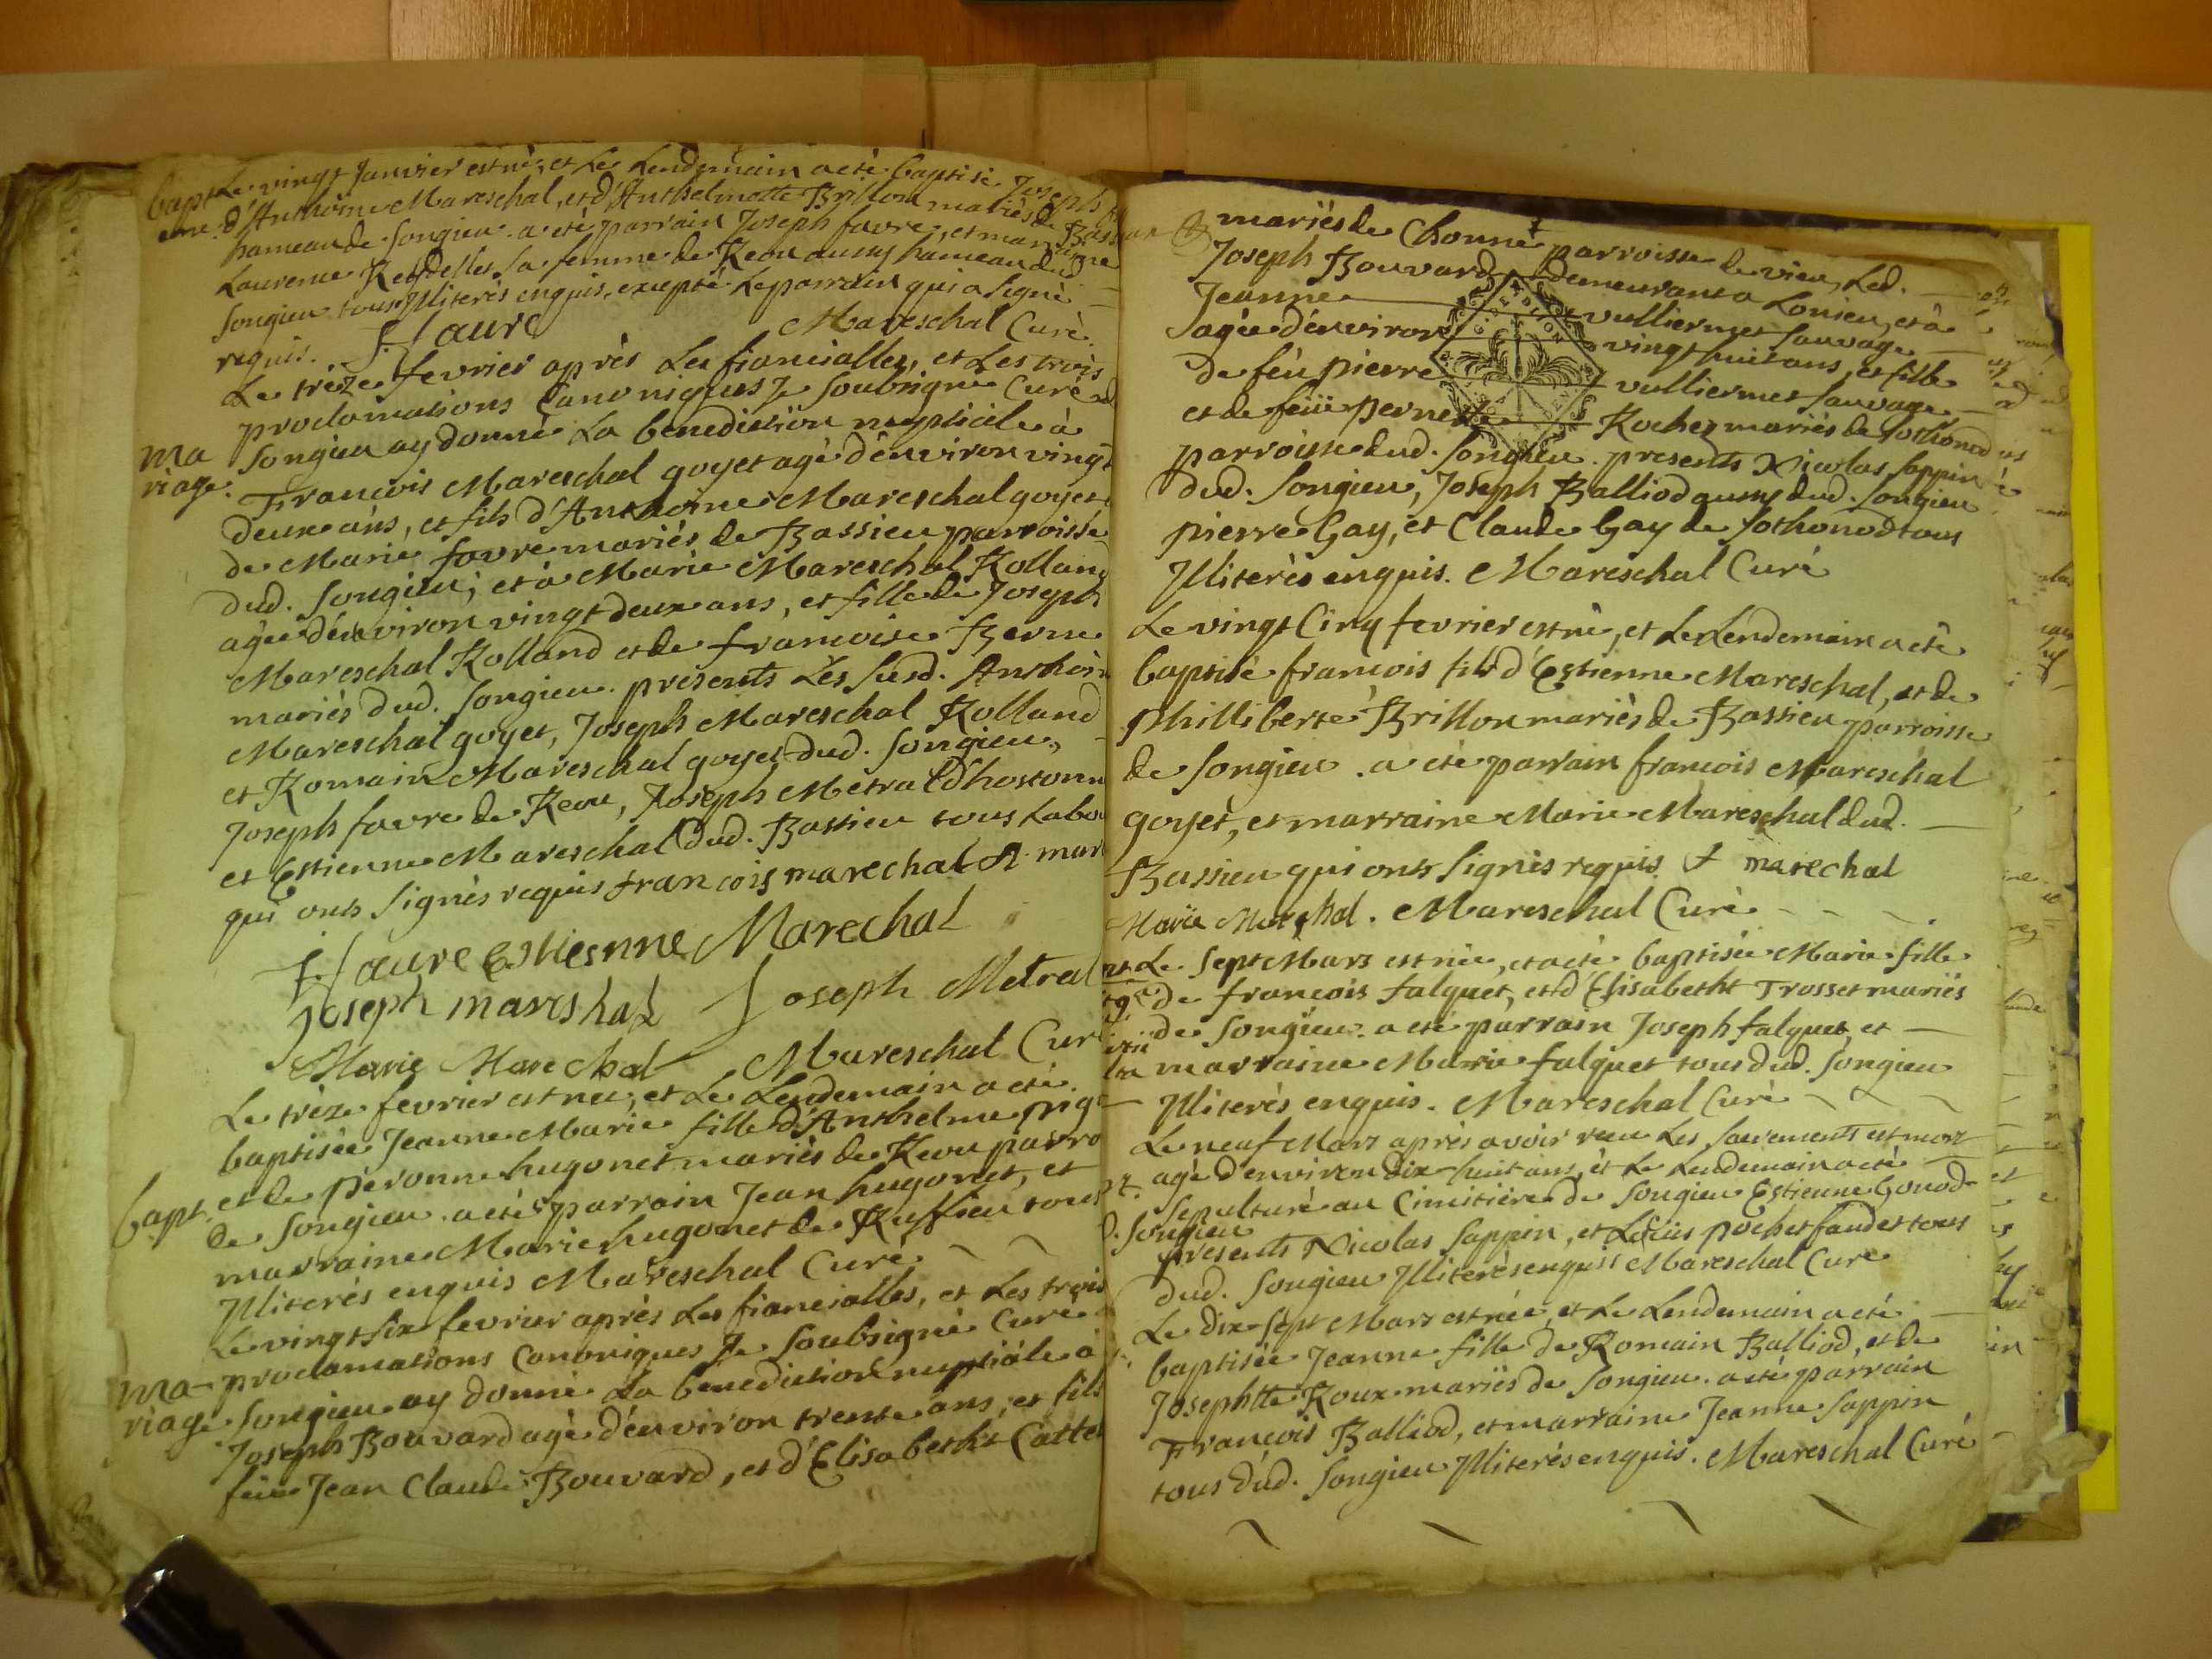 bapt Le vingt Janvier est né, et Le Lendemain a eté baptisé Joseph
d'Anthoine Mareschal, et d'Anthelmette Brillon mariés de Bassieu
hameau de Songieu. a eté parrain Joseph favre, et marraine
Laurence sa femme de Reou aussy hameau dud
Songieu tous Illiterés enquis, excepté Le parrain qui a signé
requis. J. faure Mareschal Curé.
Le trèze fevrier après Les fiancialles, et Les trois
proclamations Canoniques Je soubsigné Curé
ma songieu ay donné La benediction nuptiale à
riage. François Mareschal goyet agé d'environ vingt
deux ans, et fils d'Anthoine Mareschal goyet
de Marie favre mariés de Bassieu parroisse
dud. Songieu; et à Marie Mareschal Rolland
agée d'environ vingt deux ans, et fille de Joseph
Mareschal Rolland et de françoise Berne
mariés dud. Songieu. presents Les susd. Anthoine
Mareschal goyet, Joseph Mareschal Rolland
et Romain Mareschal goyet dud. Songieu,
Joseph favre de Reou, Joseph Metral d'hostonne
et Estienne Mareschal dud. Bassieu tous Labou
qui ont signés requis francois marechal A mare
J. faure Estiesnne Marechal
Joseph mareshal Joseph Metral
Marie Marechal Mareschal Curé
Le trèze fevrier est née, et Le Lendemain a eté
baptisée Jeanne Marie fille d'Anthelme pig
bapt. et de pèronne hugonet mariés de Reou parro
de Songieu. a eté parrain Jean hugonet, et
marraine Marie hugonet de Ruffieu tous
Illiterés enquis Mareschal Curé
Le vingt six fevrier après Les fiancialles, et Les trois
ma proclamations Canoniques Je soubsigné Curé
riage Songieu ay donné La benediction nuptiale à
Joseph Bouvard agé d'environ trente ans, et fils
feüe Jean Claude Bouvard, et d'Elisabetht Catte
mariés de Chonne parroisse de vieu, Led.
Joseph Bouvard demeurant a Lonieu, et à
Jeanne vulliermet sauvage
agée d'environ vingt huit ans, et fille
de feu pierre vulliermet sauvage
et de feüe pernette Rochez mariés de Jothonod
parroisse dud. Songieu. presents Nicolas Sappin
dud. Songieu, Joseph Balliod aussy dud. Songieu
pierre Gay, et Claude Gay de Jothonod tous
Illiterés enquis. Mareschal Curé
Le vingt Cinq fevrier est né, et Le Lendemain a eté
baptisé françois fils d'Estienne Mareschal, et de
Philliberte Brillon mariés de Bassieu parroisse
de Songieu. a eté parrain francois Mareschal
goyet, et marraine Marie Mareschal dud.
Bassieu qui onts signés requis. f marechal
Marie Marechal. Mareschal Curé
Le sept Mars est née, et a eté baptisée Marie fille
de françois falquet, et d'Elisabetht Trosset mariés
de Songieu. a eté parrain Joseph falquet, et
marraine Marie falquet tous dud. Songieu
Illiterés enquis. Mareschal Curé
Le neuf Mars après avoir receu Les sacrements est mort
agé d'environ dix-huit ans, et Le Lendemain a eté
sepulturé au Cimitière de Songieu Estienne Gonod
d. Songieu
presents Nicolas Sappin, et Loüis pochet faudet tous
dud. Songieu Illiterés enquis Mareschal Curé
Le dix-sept Mars est née, et Le Lendemain a eté
baptisée Jeanne fille de Romain Balliod, et de
Josephtte Roux mariés de Songieu. a eté parrain
François Balliod, et marraine Jeanne Sappin
tous dud. Songieu Illiterés enquis. Mareschal Curé